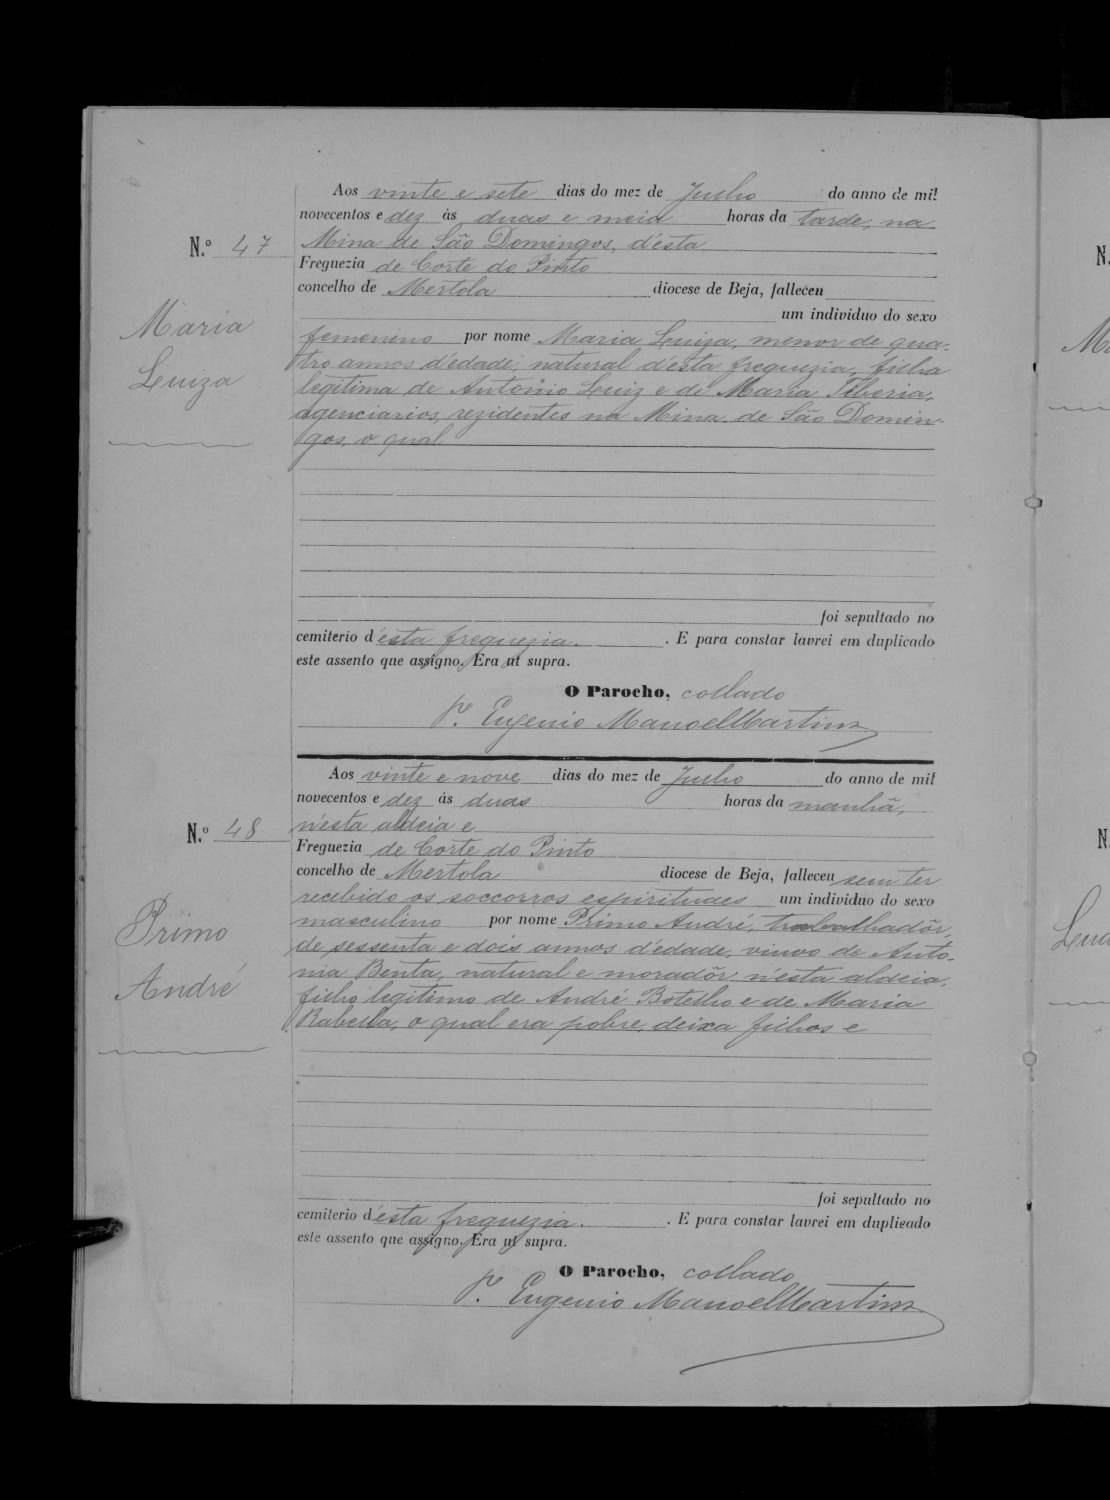 Aos vinte e sete dias do mez de Julho do anno de mil
novecentos e dez ás duas e meia horas da tarde, na
N.º 47
Mina de São Domingos, d'esta
Freguezia de Corte do Pinto
concelho de Mertola diocese de Beja, falleceu
um individuo do sexo
Maria
Luiza
femenino por nome Maria Luiza, menor de qua-
tro annos d'edade, natural d'esta freguezia, filha
legitima de Antonio Luiz e de Maria Tiberia,
agenciarios, rezidentes na Mina de São Domin-
gos, o qual
foi sepultado no
cemiterio d'esta freguezia. . E para constar lavrei em duplicado
este assento que assigno. Era ut supra.
O Parocho, collado
P.e Eugenio Manoel Martins
Aos vinte e nove dias do mez de Julho do anno de mil
novecentos e dez ás duas horas da manhã,
N.º 48
n'esta aldeia e
Freguezia de Corte do Pinto
concelho de Mertola diocese de Beja, falleceu sem ter
recebido os soccorros espirituaes um individuo do sexo
Primo
André
masculino por nome Primo André, trabalhadôr,
de sessenta e dois annos d'edade, viuvo de Anto-
nia Benta, natural e moradôr n'esta aldeia,
filho legitimo de André Botelho e de Maria
Rabella, o qual era pobre, deixa filhos e
foi sepultado no
cemiterio d'esta freguezia. . E para constar lavrei em duplicado
este assento que assigno. Era ut supra.
O Parocho, collado
P.e Eugenio Manoel Martins
N.
N.